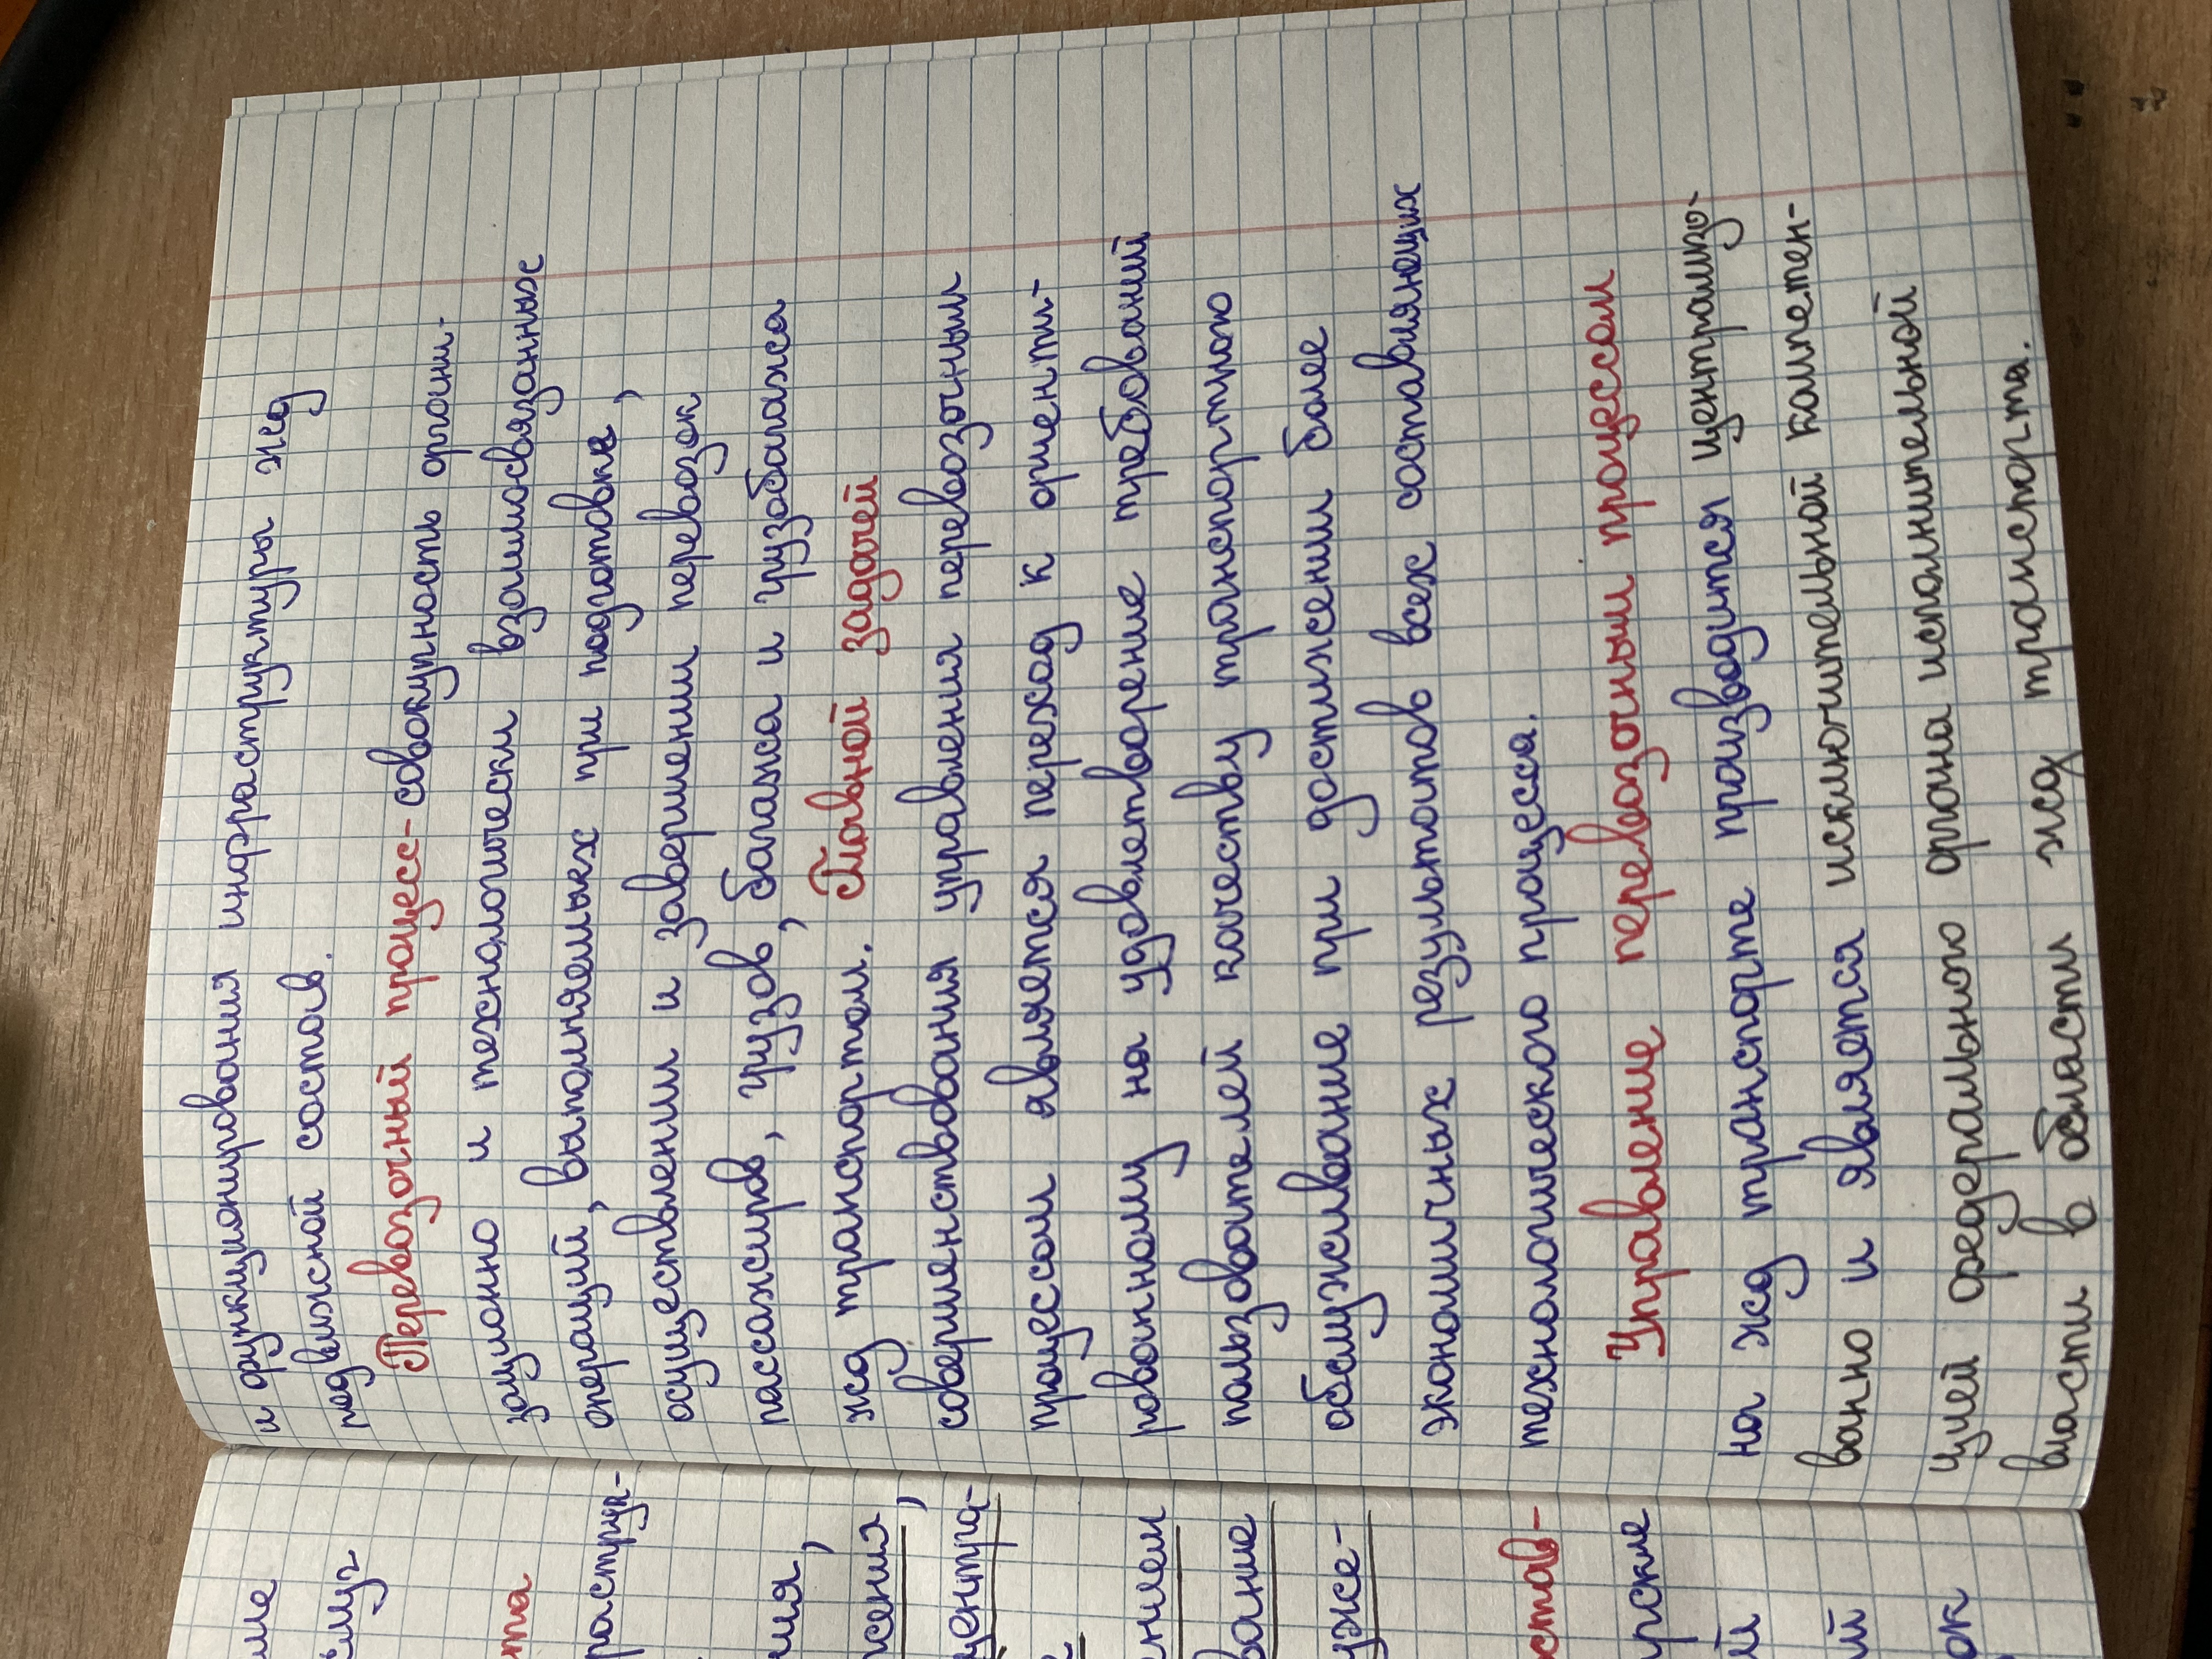 и функционирования инфраструктуры жд
подвижной состав.
Перевозочный процесс - совокупность органи-
зационно и технологически взаимосвязанных
операций, выполняемых при подготовке,
осуществлении и завершении перевозок
пассажиров, грузов, багажа и грузобагажа
жд транспортом. Главной задачей
совершенствования управления перевозочным
процессом является переход к ориенти-
рованному на удовлетворение требований
пользователей качеству транспортного
обслуживание при достижении более
экономичных результатов всех составляющих
технологического процесса.
Управление перевозочным процессом
на жд транспорте производится централизо-
ванно и является исключительной компетен-
цией федерального органа исполнительной
власти в области жд транспорта.